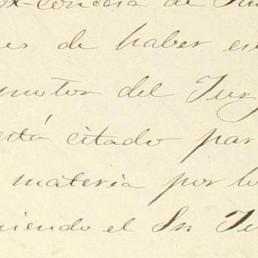 de
es de haber es
motor del Juz
está citado par
materia por lo
niendo el Sr Te